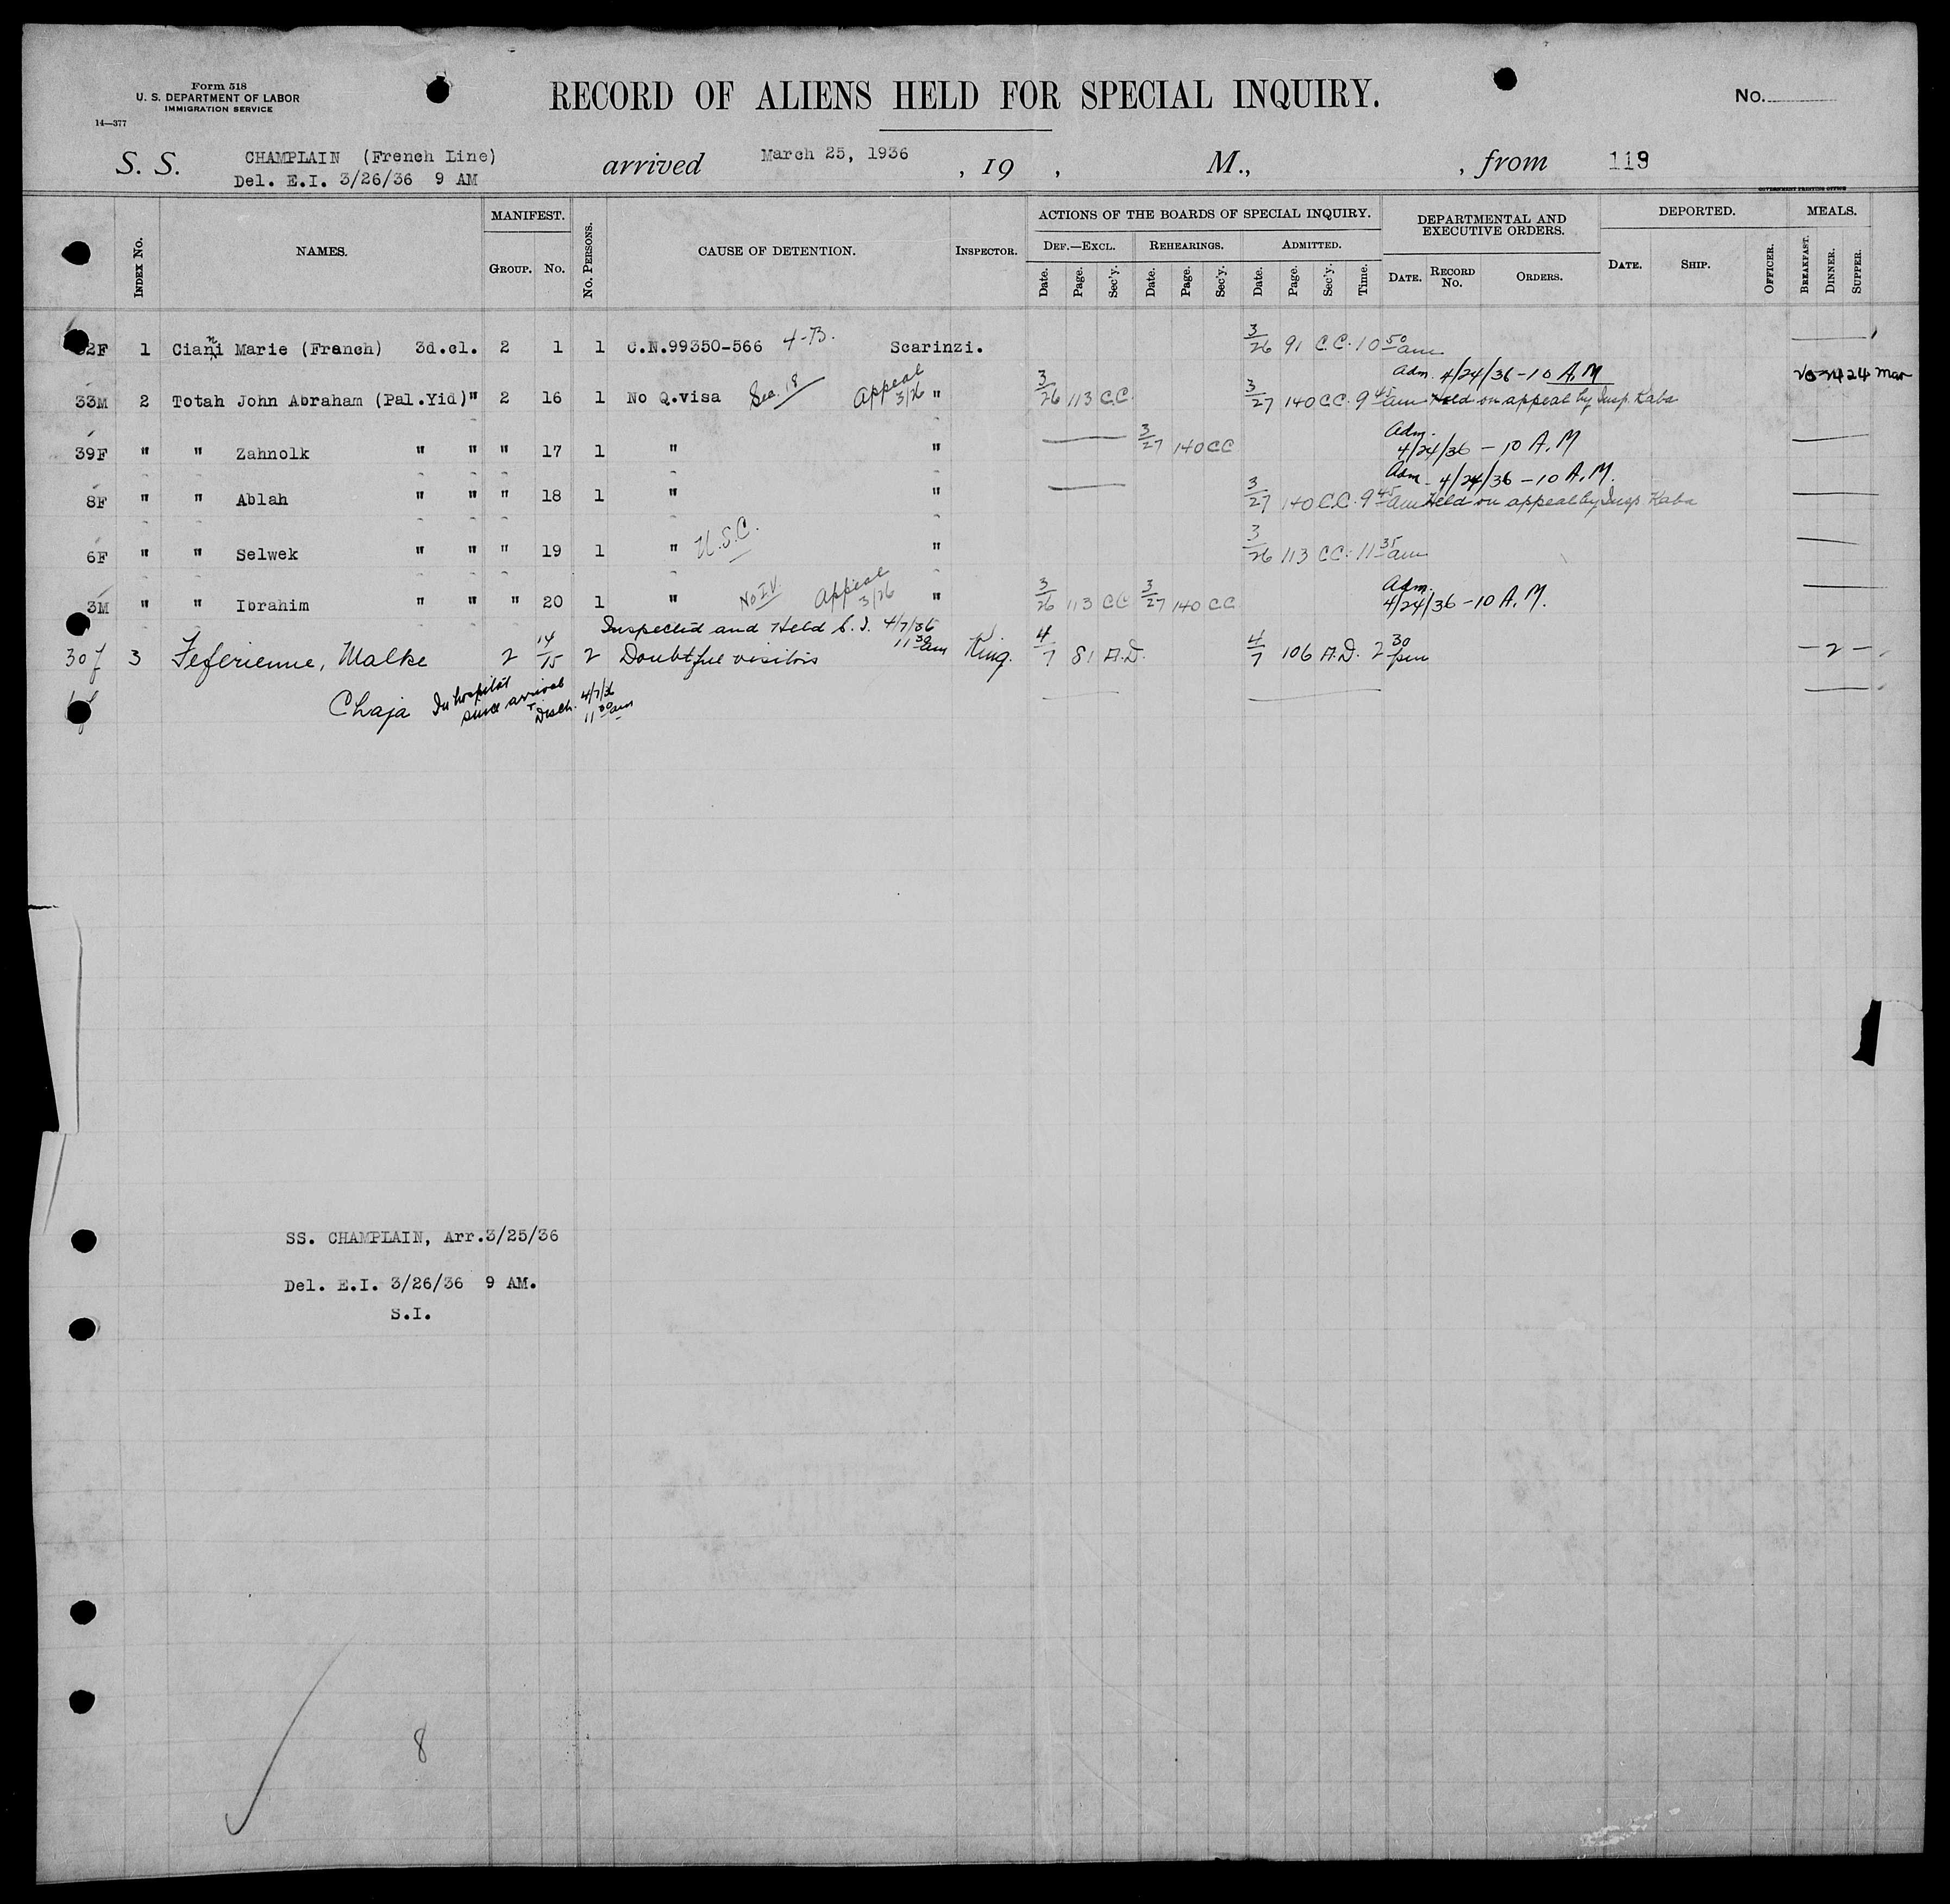 Form 518
U. S. DEPARTMENT OF LABOR
IMMIGRATION SERVICE
14—377
RECORD OF ALIENS HELD FOR SPECIAL INQUIRY.
No.
S. S. CHAMPLAIN (French Line) arrived March 25, 1936 , 19 , M., , from 119
Del. E.I. 3/26/36 9 AM
GOVERNMENT PRINTING OFFICE
Index No. NAMES. MANIFEST. Group. No. No. Persons. CAUSE OF DETENTION. Inspector. ACTIONS OF THE BOARDS OF SPECIAL INQUIRY. Def.—Excl. Date. Page. Sec'y. Rehearings. Date. Page. Sec'y. Admitted. Date. Page. Sec'y. Time. DEPARTMENTAL AND EXECUTIVE ORDERS. Date. Record No. Orders. DEPORTED. Date. Ship. Officer. MEALS. Breakfast. Dinner. Supper.
2F 1 Ciani Marie (French) 3d.cl. 2 1 1 C.N.99350-566 4-B. Scarinzi. 3/26 91 C.C. 10 50 am
Adm. 4/24/36 - 10 A.M
33M 2 Totah John Abraham (Pal.Yid)" 2 16 1 No Q.visa Sec. 18 Appeal 3/26 " 3/26 113 C.C. 3/27 140 C.C. 9 45 am Held on appeal by Insp. Kaba
39F " " Zahnolk " " " 17 1 " " 3/27 140 CC Adm. 4/24/36 - 10 A.M
Adm - 4/24/36 - 10 A.M.
8F " " Ablah " " " 18 1 " " 3/27 140 C.C. 9 45 am Held on appeal by Insp Kaba
6F " " Selwek " " " 19 1 " U.S.C. " 3/26 113 CC. 11 35 am
3M " " Ibrahim " " " 20 1 " No I.V. Appeal 3/26 " 3/26 113 CC 3/27 140 C.C. Adm. 4/24/36 - 10 A.M.
Inspected and Held S.I. 4/7/36 11 30 am
30f 3 Feferienne, Malke 2 14/15 2 Doubtful visitors King. 4/7 81 A.D. 4/7 106 A.D. 2 30 pm - 2 -
Chaja In hospital since arrival Disch. 4/7/36 11 30 am
SS. CHAMPLAIN, Arr.3/25/36
Del. E.I. 3/26/36 9 AM.
S.I.
8